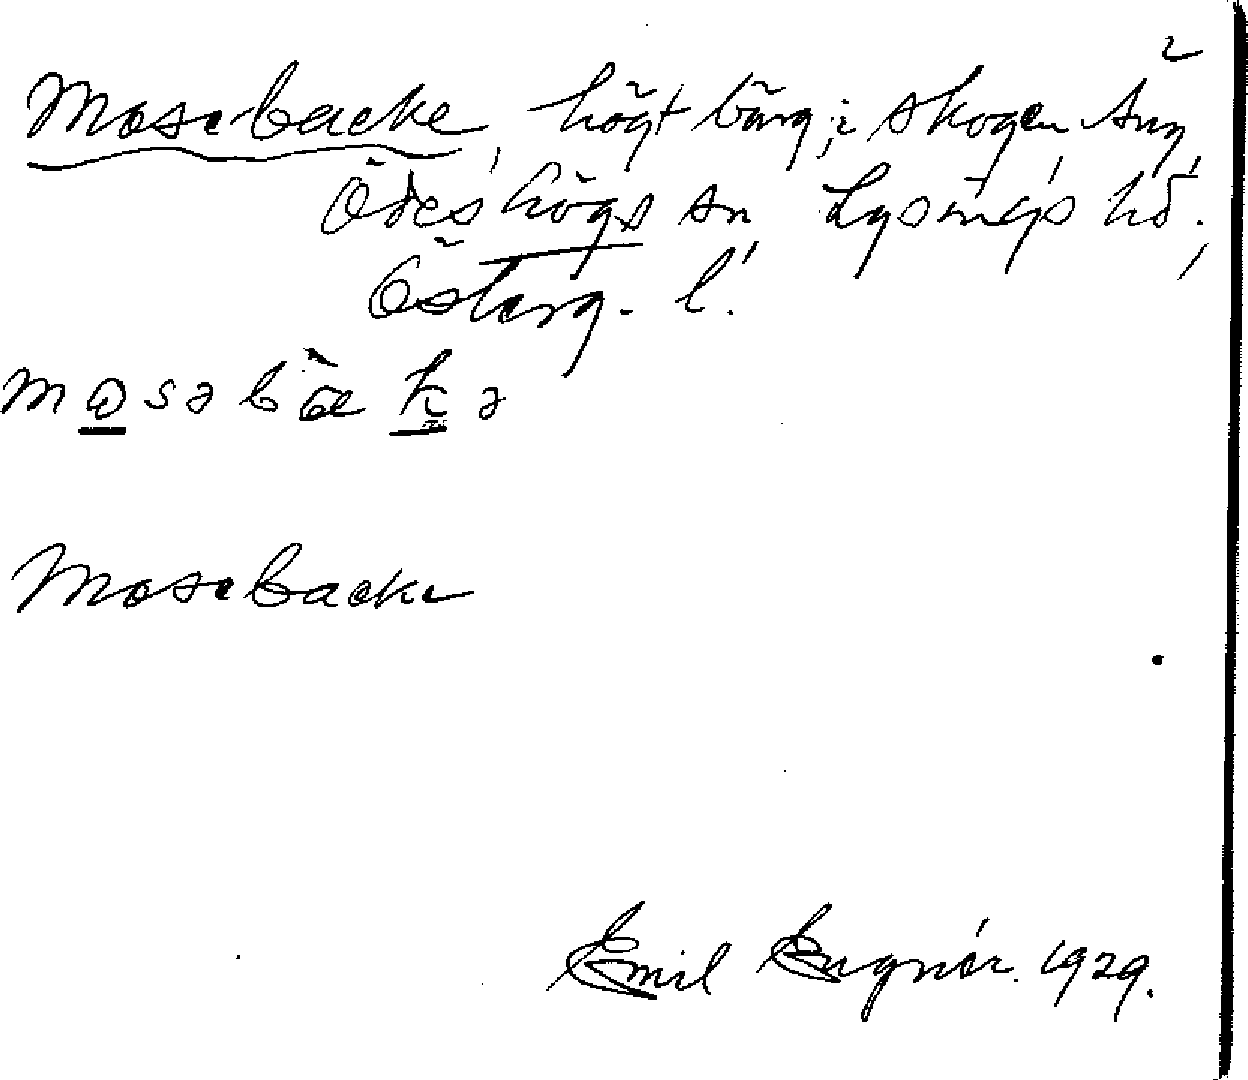 Mosebacke, högt bärg i skogen
Ödeshögs sn Lysings hd.,
Österg. l.
mosəbakə
Mosebacke
Emil Engnér. 1929.